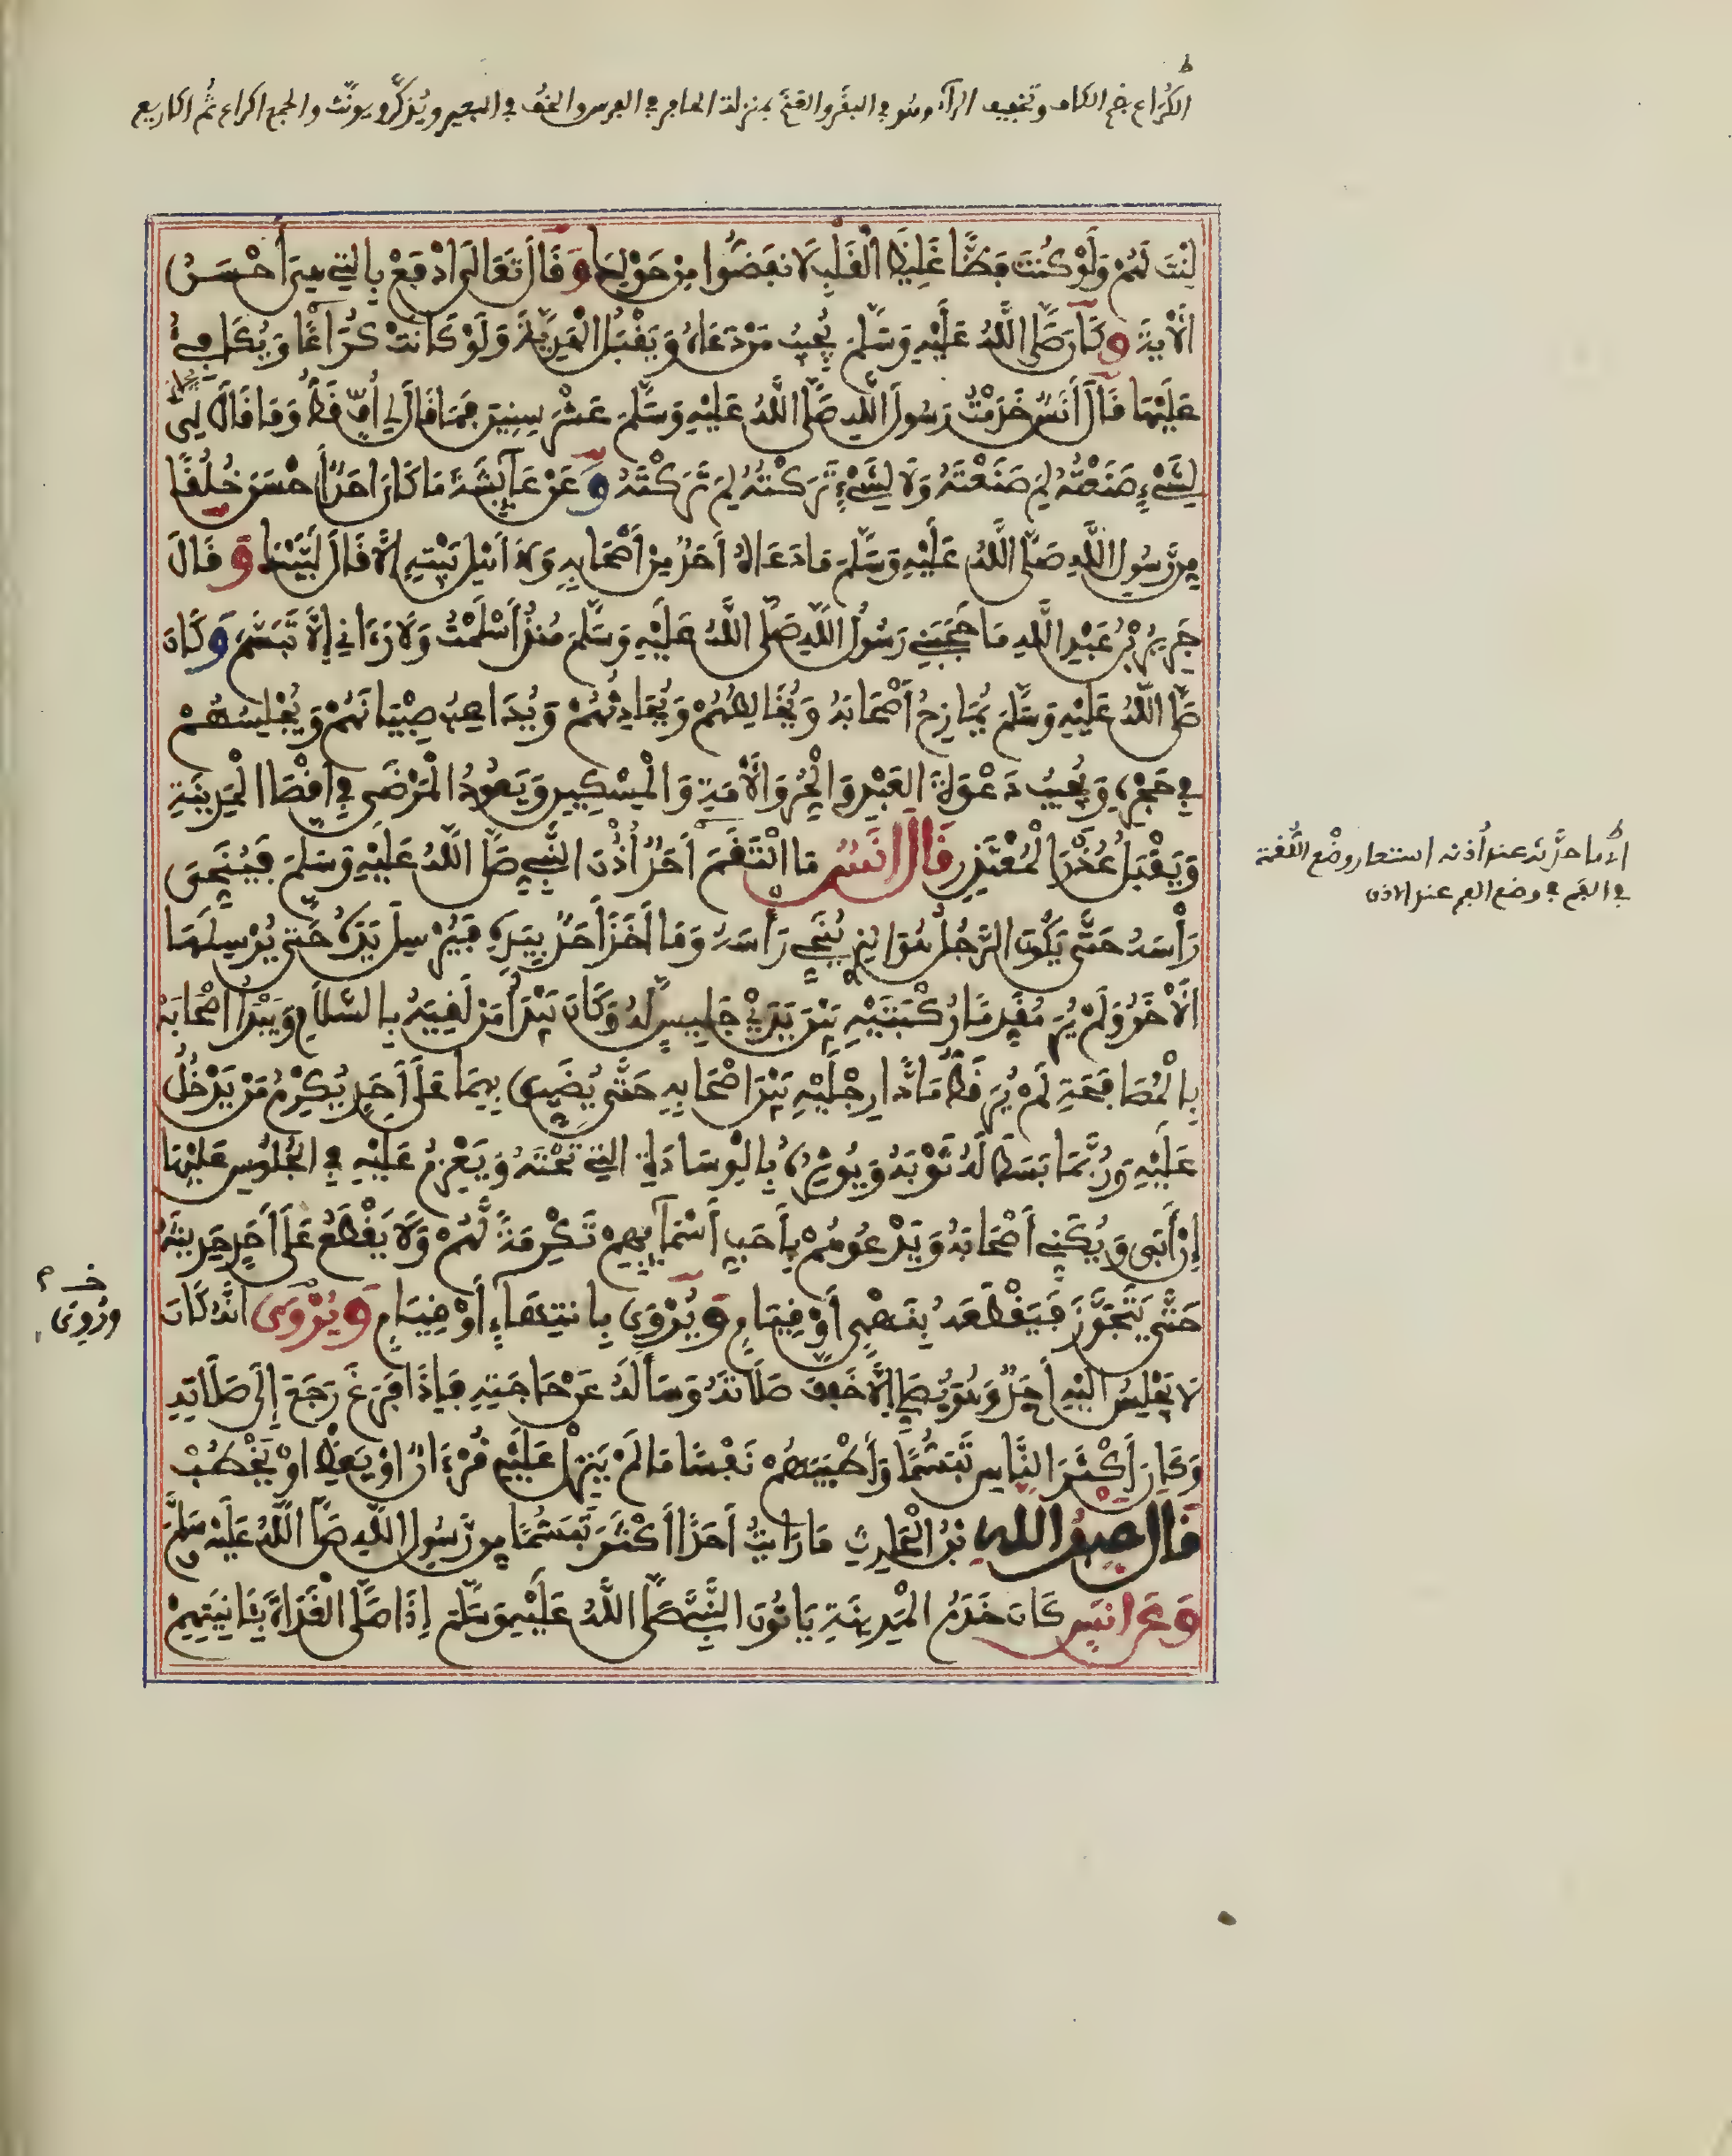 الكُرَاع بضم الكاف وتخفيف الرآء وهو في البقر والغنم بمنزلة الحافر في الفرس والخف في البعير ويذكَّر ويونّث والجمع اكراع ثُم اكاريع
لِنْتَ لَهُمْ وَلَوْ كُنْتَ فَظًّا غَلِيظَ الْقَلْبِ لَانفَضُّوا مِنْ حَوْلِكَ وَقَالَ تَعَالَى ادْفَعْ بِالتِي هِيَ أَحْسَنُ
الْآيَةَ وَكَانَ صَلَّى اللَّهُ عَلَيْهِ وَسَلَّمَ يُجِيبُ مَنْ دَعَاهُ وَيَقْبَلُ الْهَدِيَّةَ وَلَوْ كَانَتْ كُرَاعًا وَيُكَافِئُ
عَلَيْهَا قَالَ أَنَسٌ خَدَمْتُ رَسُولَ اللَّهِ صَلَّى اللَّهُ عَلَيْهِ وَسَلَّمَ عَشْرَ سِنِينَ فَمَا قَالَ لِي أُفٍّ قَطُّ وَمَا قَالَ لِي
لِشَيْءٍ صَنَعْتُهُ لِمَ صَنَعْتَهُ وَلَا لِشَيْءٍ تَرَكْتُهُ لِمَ تَرَكْتَهُ وَعَنْ عَآئِشَةَ مَا كَانَ احَدٌ أَحْسَنَ خُلُقًا
مِن رَّسُولِ اللَّهِ صَلَّى اللَّهُ عَلَيْهِ وَسَلَّمَ مَا دَعَاهُ أَحَدٌ مِنْ أَصْحَابِهِ وَلَا أَهْلِ بَيْتِهِ إِلَّا قَالَ لَبَّيْكَ وَقَالَ
جَرِيرُ بْنُ عَبْدِ اللَّهِ مَا حَجَبَنِي رَسُولُ اللَّهِ صَلَّى اللَّهُ عَلَيْهِ وَسَلَّمَ مُنْذُ أَسْلَمْتُ وَلَا رَءَانِي إِلَّا تَبَسَّمَ وَكَانَ
صَلَّى اللَّهُ عَلَيْهِ وَسَلَّمَ يُمَازِحُ أَصْحَابَهُ وَيُخَالِطُهُمْ وَيُحَادِثُهُمْ وَيُدَاعِبُ صِبْيَانَهُمْ وَيُجْلِسُهُمْ
فِي حَجْرِهِ وَيُجِيبُ دَعْوَةَ الْعَبْدِ وَالْحُرِّ وَالْأَمَةِ وَالْمِسْكِينِ وَيَعُودُ الْمَرْضَى فِي أَقْصَا الْمَدِينَةِ
وَيَقْبَلُ عُذْرَ الْمُعْتَذِرِ قَالَ انَسٌ مَا الْتَقَمَ أَحَدٌ أُذْنَ النَّبِيِّ صَلَّى اللَّهُ عَلَيْهِ وَسَلَّمَ فَيُنَحِّيَ
رَأْسَهُ حَتَّى يَكُونَ الرَّجُلُ هُوَ الذِي يُنَحِّي رَأْسَهُ وَمَا أَخَذَ أَحَدٌ بِيَدِهِ فَيُرْسِلَ يَدَهُ حَتَّى يُرْسِلَهَا
الْآخَرُ وَلَمْ يُرَ مُقَدِّمًا رُكْبَتَيْهِ بَيْنَ يَدَيْ جَلِيسٍ لَهُ وَكَانَ يَبْدَأُ مَنْ لَقِيَهُ بِالسَّلَامِ وَيَبْدَأُ أَصْحَابَهُ
بِالْمُصَافَحَةِ لَمْ يُرَ قَطُّ مَادًّا رِجْلَيْهِ بَيْنَ أَصْحَابِهِ حَتَّى يُضَيِّقَ بِهِمَا عَلَى أَحَدٍ يُكْرِمُ مَنْ يَدْخُلُ
عَلَيْهِ وَرُبَّمَا بَسَطَ لَهُ ثَوْبَهُ وَيُوثِرُهُ بِالْوِسَادَةِ التِي تَحْتَهُ وَيَعْزِمُ عَلَيْهِ فِي الْجُلُوسِ عَلَيْهَا
إِنْ أَبَى وَيُكَنِّي أَصْحَابَهُ وَيَدْعُوهُمْ بِأَحَبِّ أَسْمَآئِهِمْ تَكْرِمَةً لَهُمْ وَلَا يَقْطَعُ عَلَى أَحَدٍ حَدِيثَهُ
حَتَّى يَتَجَوَّزَ فَيَقْطَعَهُ بِنَهْيٍ أَوْ قِيَامٍ وَيُرْوَى بِانتِهَاءٍ أَوْ قِيَامٍ وَيُرْوَى انَّهُ كَانَ
خـ م
ورُوِيَ
لَا يَجْلِسُ الَيْهِ أَحَدٌ وَهُوَ يُصَلِّي إِلَّا خَفَّفَ صَلَاتَهُ وَسَأَلَهُ عَنْ حَاجَتِهِ فَإِذَا فَرَغَ رَجَعَ إِلَى صَلَاتِهِ
وَكَانَ أَكْثَرَ النَّاسِ تَبَسُّمًا وَأَطْيَبَهُمْ نَفْسًا مَا لَمْ يَنْزِلْ عَلَيْهِ قُرْءَانٌ اوْ يَعِظُ اوْ يَخْطُبُ
قَالَ عَبْدُ اللَّهِ بْنُ الْحَارِثِ مَا رَأَيْتُ أَحَدًا أَكْثَرَ تَبَسُّمًا مِن رَّسُولِ اللَّهِ صَلَّى اللَّهُ عَلَيْهِ وَسَلَّمَ
وَعَنَ انَسٍ كَانَ خَدَمُ الْمَدِينَةِ يَاتُونَ النَّبِيَّ صَلَّى اللَّهُ عَلَيْهِ وَسَلَّمَ إِذَا صَلَّى الْغَدَاةَ بِآنِيَتِهِمْ
اي ما حدَّثه عند أذنه استعار وضع اللُّقمة
في الفم في وضع الفم عند الاذن